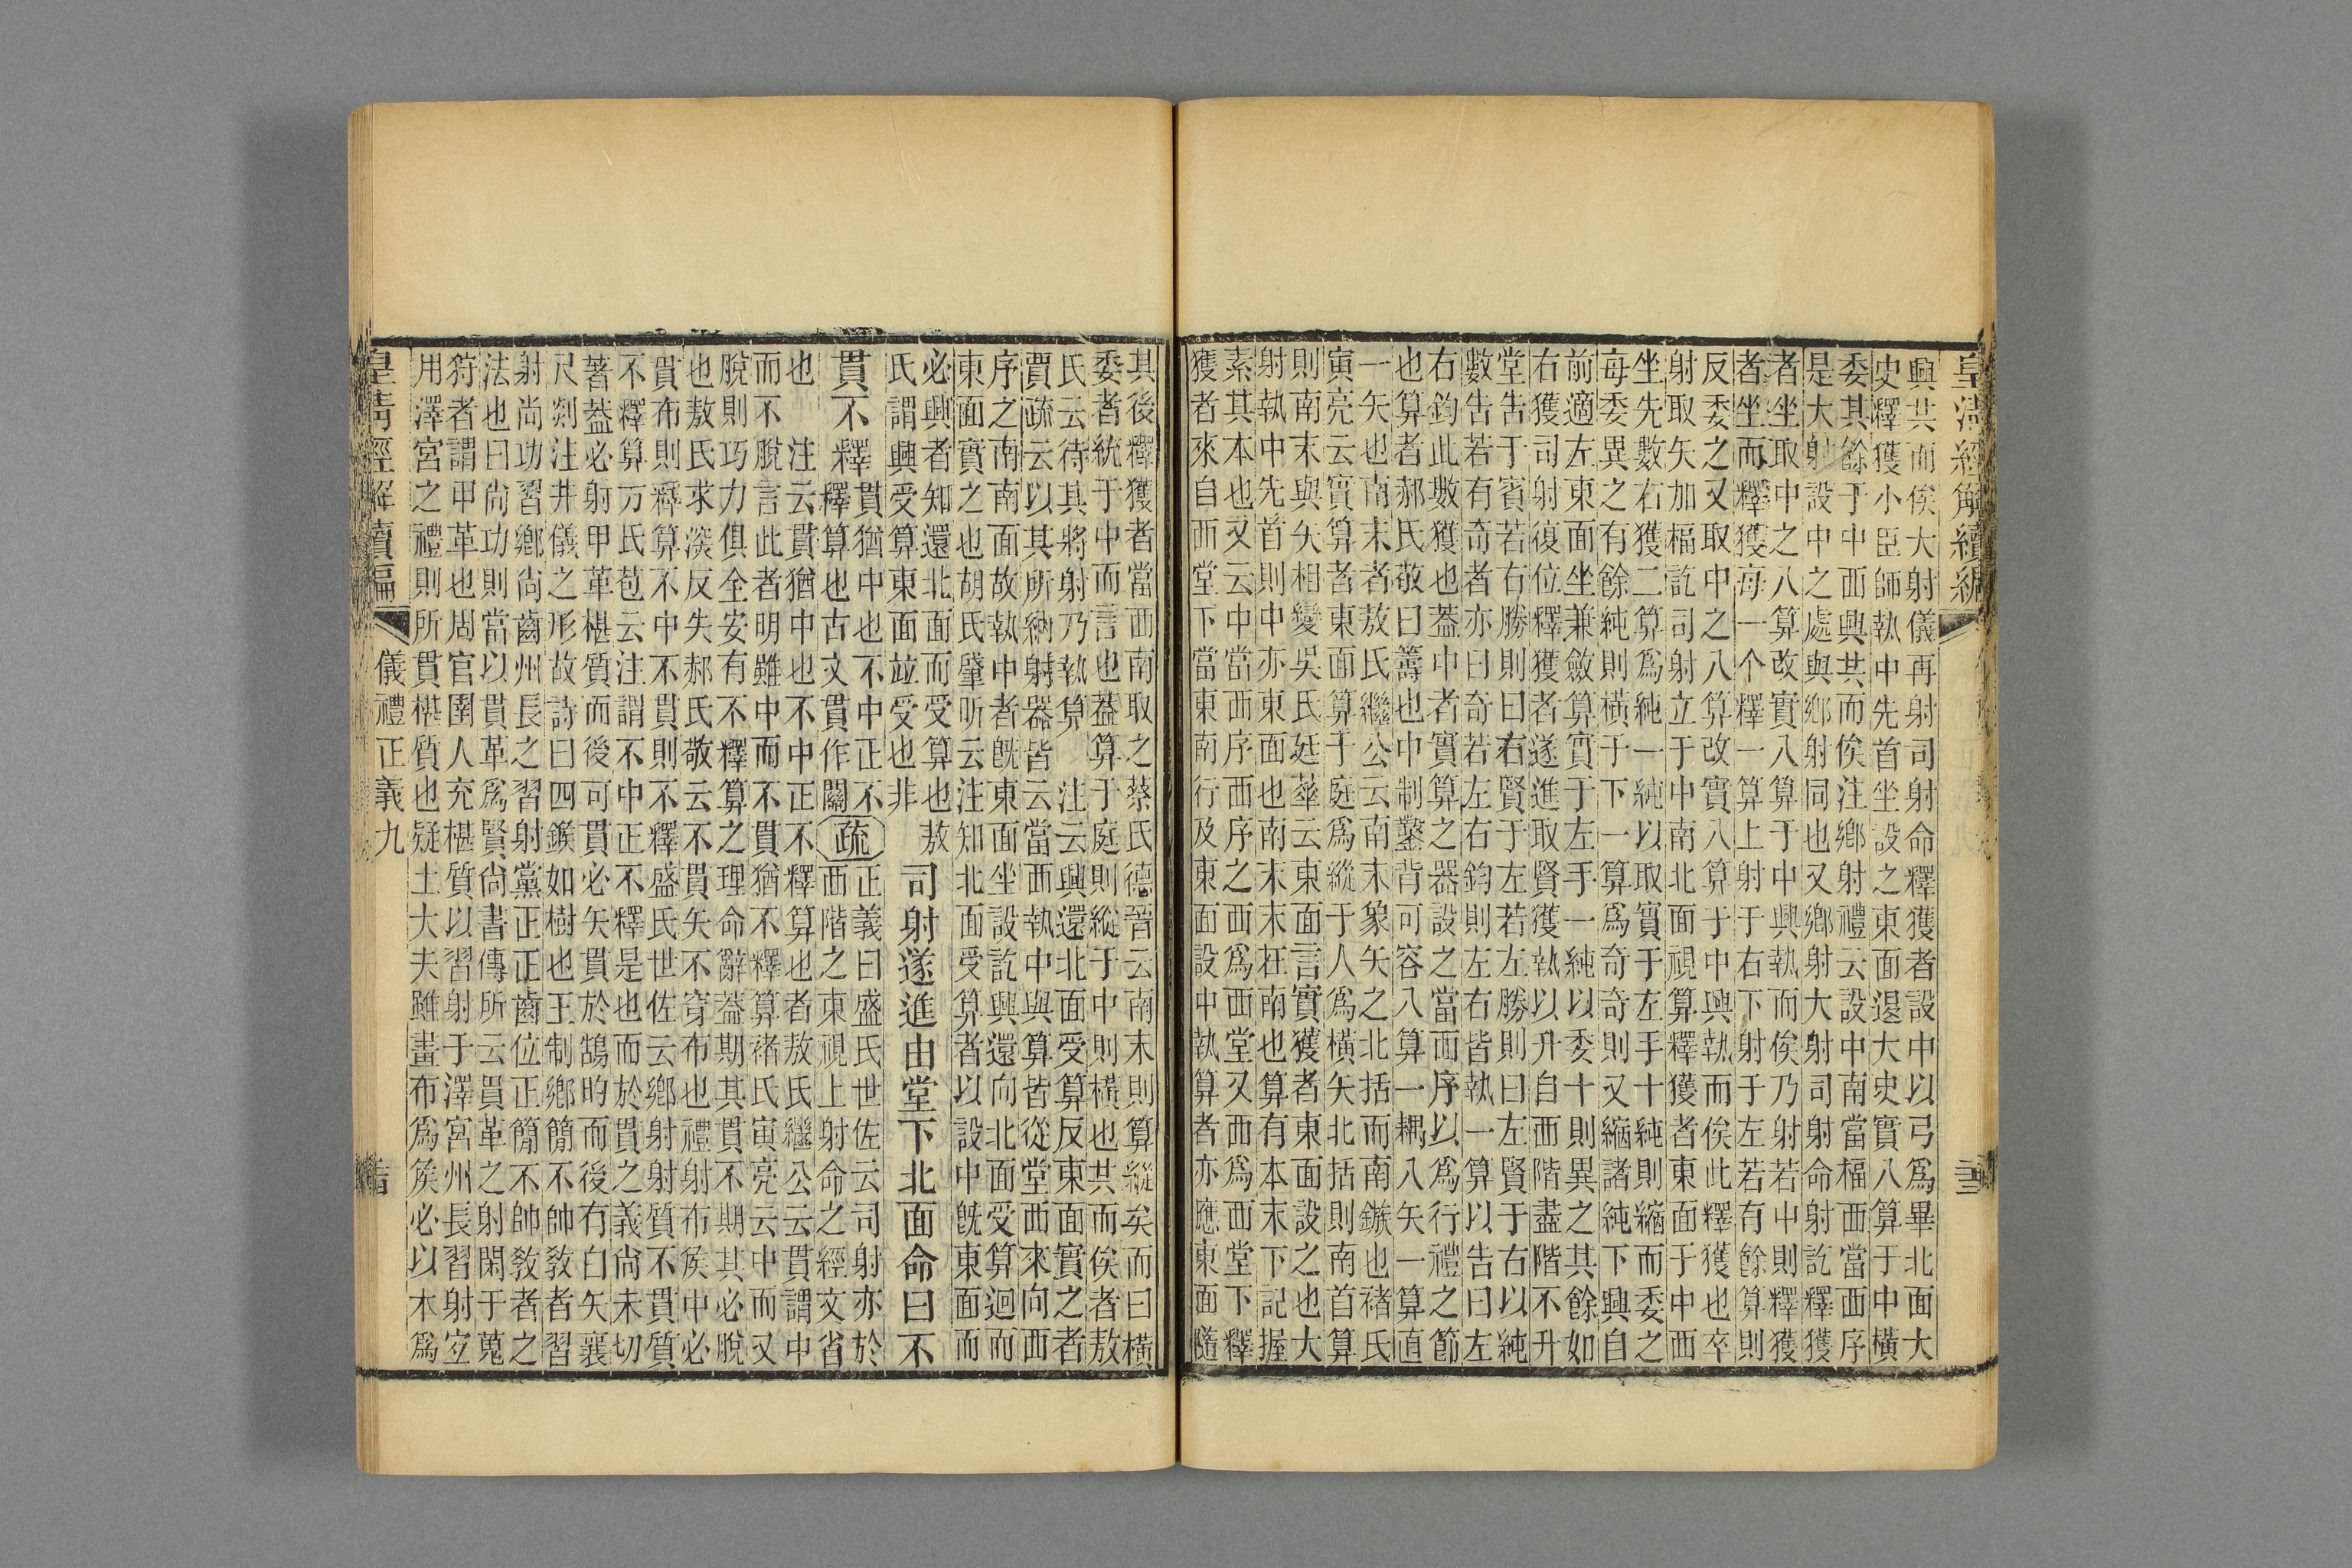 皇清經解續編
興共而俟大射儀再射司射命釋獲者設中以弓爲畢北面大
史釋獲小臣師執中先首坐設之東面退大史實八算于中橫
委其餘于中西興共而俟注鄉射禮云設中南當楅西當西序
是大射設中之處與鄉射同也又鄉射大射司射命射訖釋獲
者坐取中之八算改實八算于中興執而俟乃射若中則釋獲
者坐而釋獲每一个釋一算上射于右下射于左若有餘算則
反委之又取中之八算改實八算于中興執而俟此釋獲也卒
射取矢加楅訖司射立于中南北面視算釋獲者東面于中西
坐先數右獲二算爲純一純以取實于左手十純則縮而委之
每委異之有餘純則橫于下一算爲奇奇則又縮諸純下興自
前適左東面坐兼斂算實于左手一純以委十則異之其餘如
右獲司射復位釋獲者遂進取賢獲執以升自西階盡階不升
堂告于賓若右勝則曰右賢于左若左勝則曰左賢于右以純
數告若有奇者亦曰奇若左右鈞則左右皆執一算以告曰左
右鈞此數獲也蓋中者實算之器設之當而序以爲行禮之節
也算者郝氏敬曰籌也中制鑿背可容八算一耦八矢一算直
一矢也南末者敖氏繼公云南末象矢之北括而南鏃也褚氏
寅亮云實算者東面算于庭爲縱于人爲橫矢北括則南首算
則南末與矢相變吳氏廷華云東面言實獲者東面設之也大
射執中先首則中亦東面也南末末在南也算有本末下記握
素其本也又云中當西序西序之西爲西堂又西爲西堂下釋
獲者來自西堂下當東南行及東面設中執算者亦應東面隨
其後釋獲者當西南取之蔡氏德晉云南末則算縱矣而曰橫
委者統于中而言也蓋算于庭則縱于中則橫也其而俟者敖
氏云待其將射乃執算　注云興還北面受算反東面實之者
賈疏云以其所納射器皆云當西執中與算皆從堂西來向西
序之南南面故執中者旣東面坐設訖興還向北面受算迴而
東面實之也胡氏肇昕云注知北面受算者以設中旣東面而
必興者知還北面而受算也敖
氏謂興受算東面並受也非
司射遂進由堂下北面命曰不
貫不釋
貫猶中也不中正不
釋算也古文貫作關
疏
正義曰盛氏世佐云司射亦於
西階之東視上射命之經文省
也　注云貫猶中也不中正不釋算也者敖氏繼公云貫謂中
而不脫言此者明雖中而不貫猶不釋算褚氏寅亮云中而又
脫則巧力俱全安有不釋算之理命辭蓋期其貫不期其必脫
也敖氏求深反失郝氏敬云不貫矢不穿布也禮射布侯中必
貫布則釋算不中不貫則不釋盛氏世佐云鄉射射質不貫質
不釋算方氏苞云注謂不中正不釋是也而於貫之義尚未切
著蓋必射甲革椹質而後可貫必矢貫於鵠的而後有白矢襄
尺剡注井儀之形故詩曰四鍭如樹也王制鄉簡不帥教者習
射尚功習鄉尚齒州長之習射黨正正齒位正簡不帥教者之
法也曰尚功則當以貫革爲賢尚書傳所云貫革之射閑于蒐
狩者謂甲革也周官圉人充椹質以習射于澤宮州長習射宜
用澤宮之禮則所貫椹質也疑士大夫雖畫布爲侯必以木爲
皇清經解續編
儀禮正義九